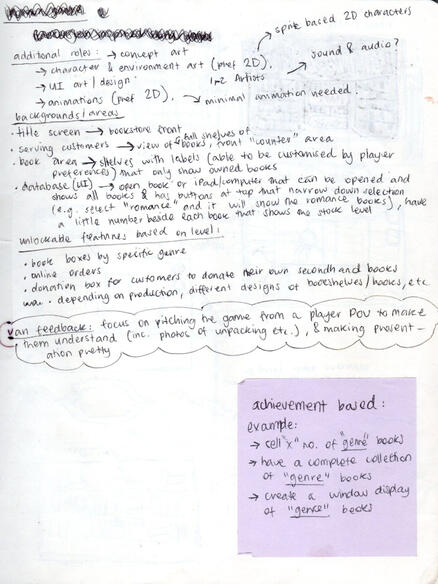 sprite based 2D characters
additional roles: → concept art
sound & audio?
→ character & environment art (pref 2D).
→ UI art / design.
1-2 Artists
→ animations (pref 2D).
minimal animation needed.
backgrounds/areas
• title screen → bookstore front
• serving customers → view of full shelves of books, front "counter" area
• book area → shelves with labels (able to be customised by player
preferences) that only show owned books
• database (UI) → open book or iPad/computer that can be opened and
shows all books & has buttons at top that narrow down selection
(e.g. select "romance" and it will show the romance books), have
a little number beside each book that shows the stock level
unlockable features based on level:
• book boxes by specific genre
• online orders
• donation box for customers to donate their own secondhand books
• depending on production, different designs of bookshelves/books, etc
van feedback: focus on pitching the game from a player POV to make
them understand (inc. photos of unpacking etc.), & making present-
ation pretty
achievement based:
example:
→ sell "x" no. of "genre" books
→ have a complete collection
of "genre" books
→ create a window display
of "genre" books